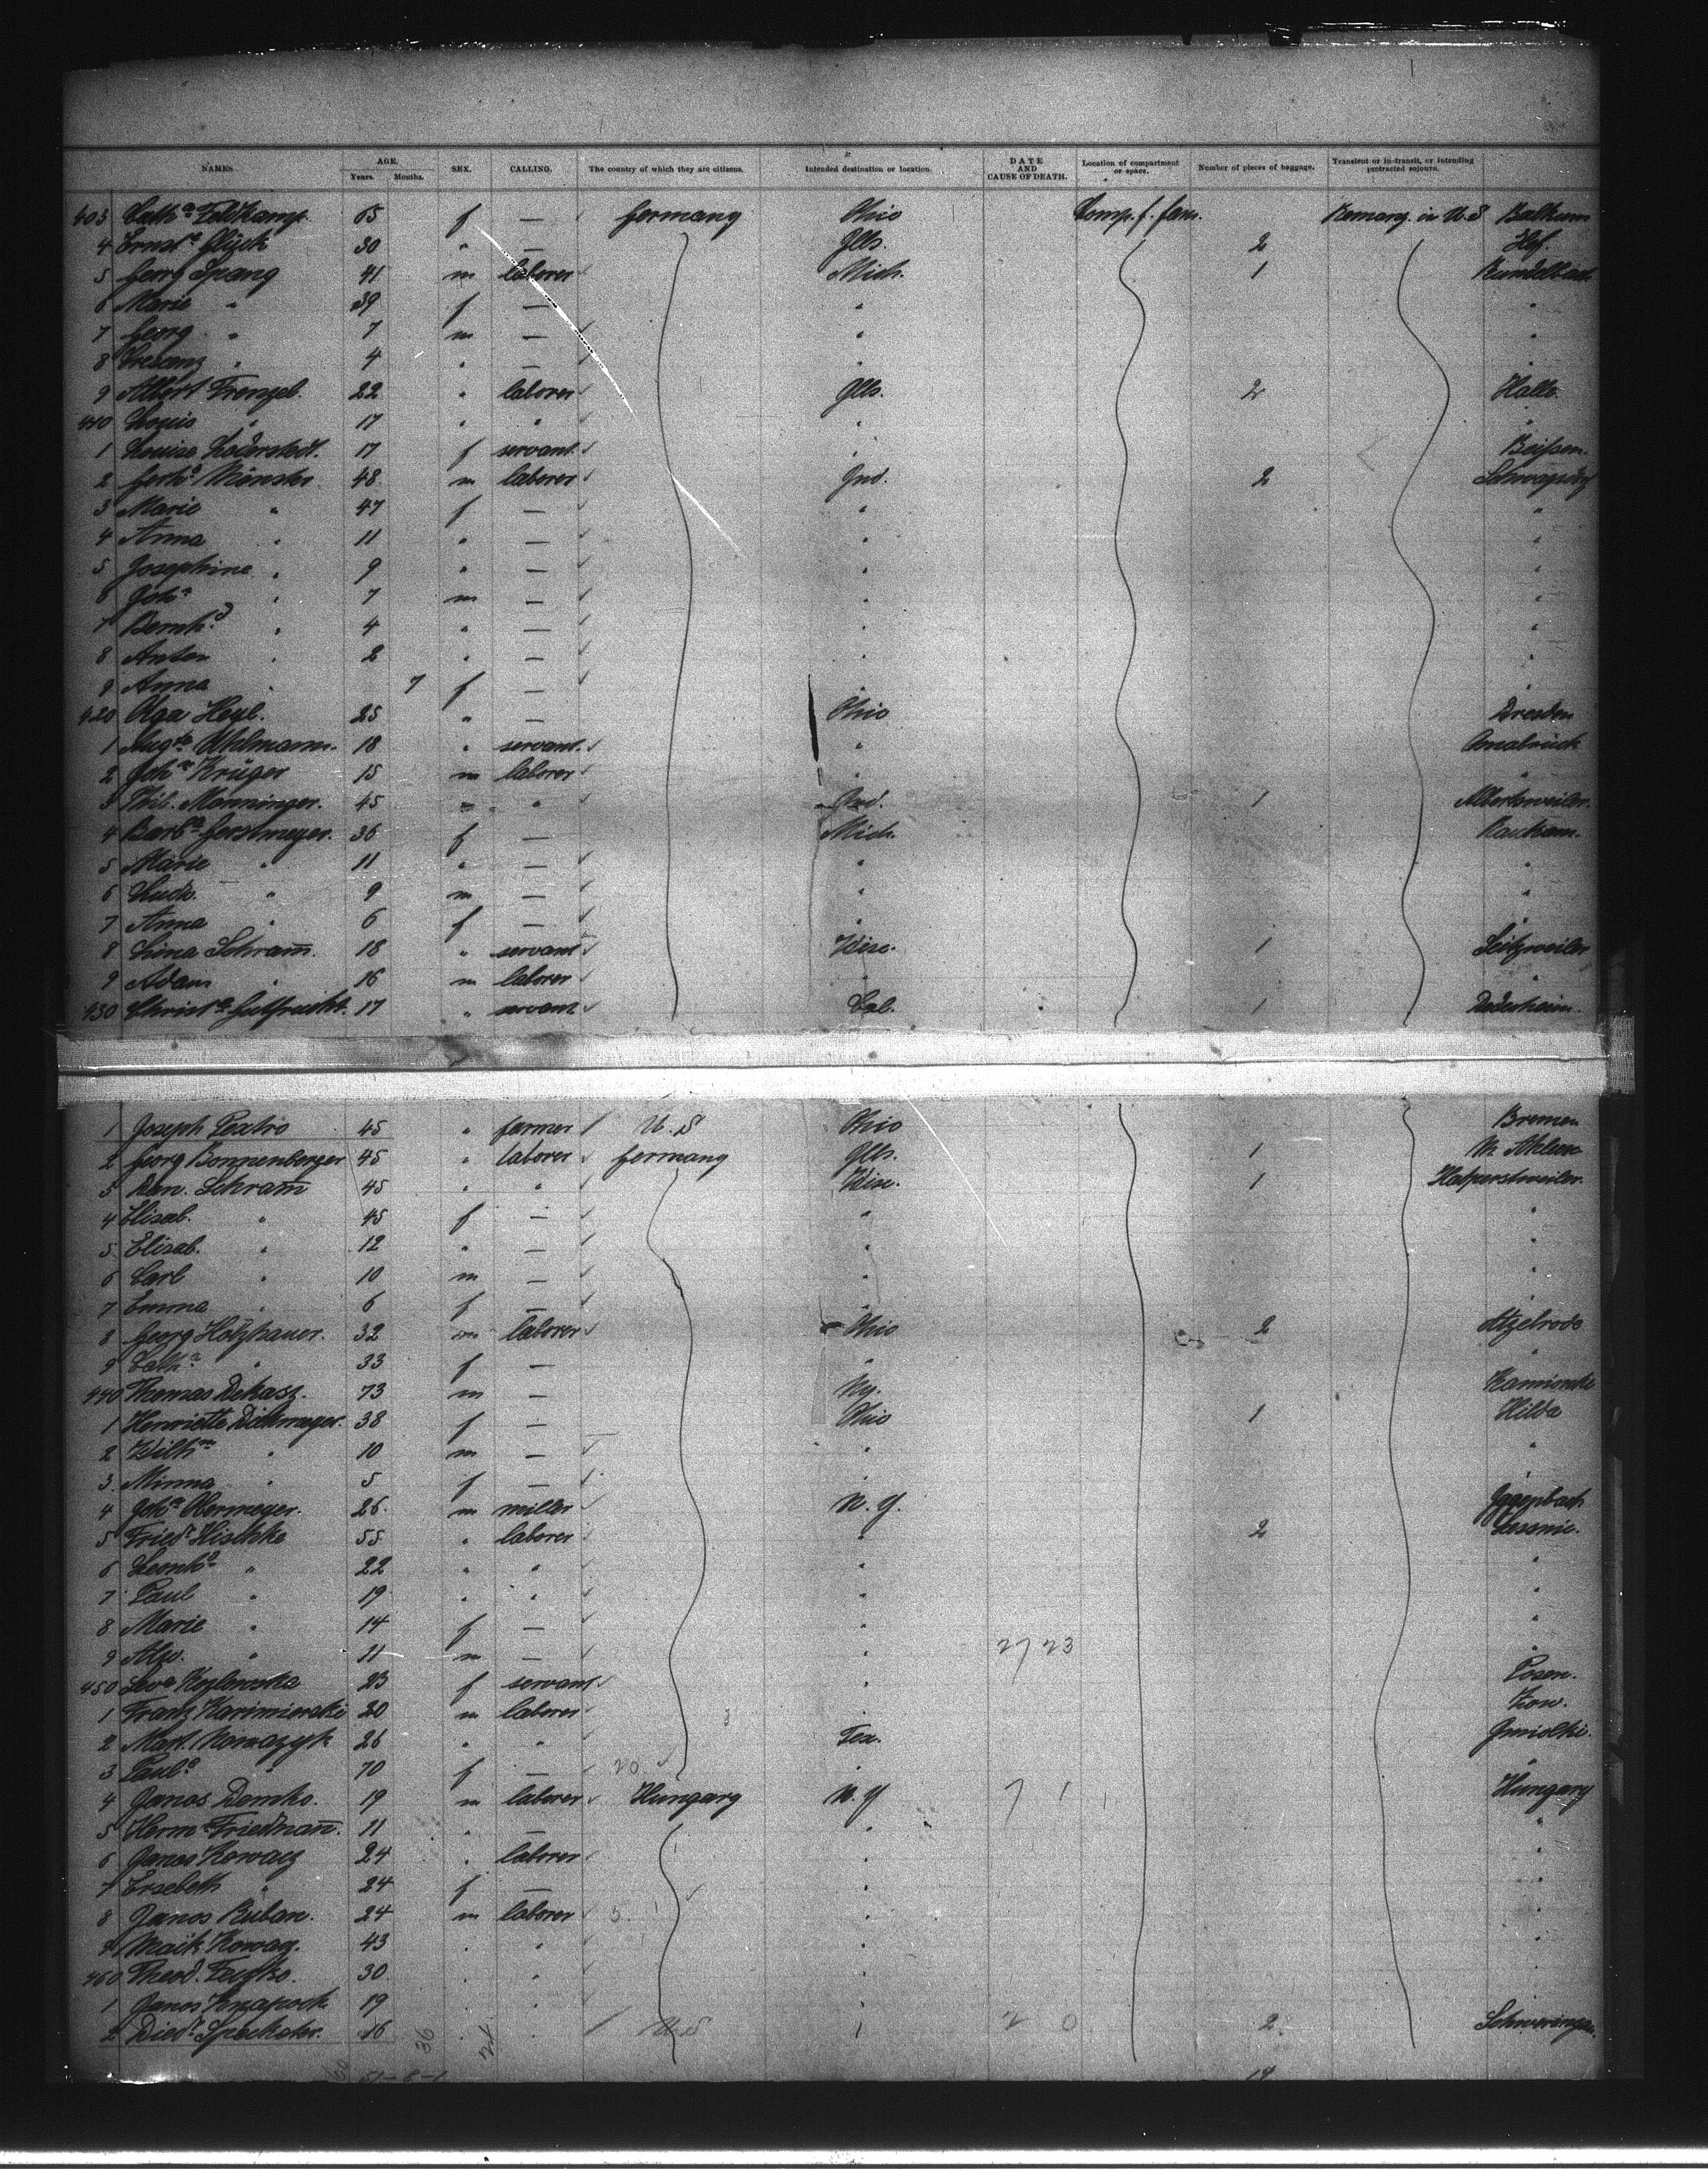 NAMES. AGE. SEX. CALLING. The country of which they are citizens. Intended destination or location. DATE AND CAUSE OF DEATH. Location of compartment or space. Number of pieces of baggage. Transient or in-transit, or intending protracted sojourn.
Years. Months.
403 Cath.a Feldkamp. 65 f — Germany Ohio Comp. f. fam. Remarg. in U.S Balkum
4 Ernst.e Glück 30 " — Ills. 2 Hof.
5 Georg Spang 41 m laborer Mich. 1 Bundelbach
6 Marie " 39 f — " "
7 Georg " 7 m — " "
8 Crescenz " 4 " — " "
9 Albert Frenzel. 22 " laborer Ills. 2 Halle.
410 Louis " 17 " " " "
1 Louise Lederstedt. 17 f servant " Beißen
2 Gerh.d Mönster 48 m laborer Ind. 2
3 Marie " 47 f — " "
4 Anna " 11 " — " "
5 Josephine " 9 " — " "
6 Joh.n " 7 m — " "
7 Bernh.d " 4 " — " "
8 Anton " 2 " — " "
9 Anna " 7 f — " "
420 Olga Heyl. 25 " — Ohio Dresden
1 Aug.te Uhlmann. 18 " servant. " Osnabrück
2 Joh.n Krüger 15 m laborer " "
3 Phil. Manninger. 45 " " Ind. 1 Albertsweiler.
4 Barb.a Gerstmeyer. 36 f — Mich.
5 Marie " 11 " — " "
6 Ludw. " 9 m — " "
7 Anna " 6 f — " "
8 Lina Schram̄. 18 " servant Wisc. 1 Seitzweiler
9 Adam " 16 m laborer " "
430 Christ.e Gutfrucht. 17 " servant Cal. 1 Dedenheim.
1 Joseph Pextro 45 " farmer U.S Ohio Bremen
2 Georg Bonnenberger 45 " laborer Germany Ills. 1
3 Dan. Schram̄ 45 " " Wisc. 1
4 Elisab. " 45 f — " "
5 Elisab. " 12 " — " "
6 Carl " 10 m — " "
7 Emma " 6 f — " "
8 Georg Holzhauer. 32 m laborer Ohio 2 Atzelrode
9 Cath.a " 33 f — " "
440 Thomas Dekasz. 73 m — Ky.
1 Henriette Dickmeyer. 38 f — Ohio 1 Hilda
2 Wilh.m " 10 m — " "
3 Minna " 5 f — " "
4 Joh.n Obermeyer. 26 m miller N.Y. Iggenbach
5 Fried.r Hischke 55 " laborer " 2 Lessnie.
6 Leonh.d " 22 " " " "
7 Paul " 19 " " " "
8 Marie " 14 f — " "
9 Alw. " 11 m — " 27 23 "
450 Kozlowska 23 f servant " Posen.
1 Frank Karimierski 20 m laborer "
2 Mart. Nowazyk 26 " " Tex.
3 Paul.e " 70 f — 20 " "
4 Janos Demko. 19 m laborer Hungary N.Y 7 1 Hungary
5 Herm. Friedman̄. 11 " — " "
6 Janos Kowacz 24 " laborer " "
7 Ersebeth " 24 f — " "
8 Janos Buban. 24 m laborer 5 " "
9 Kowacz. 43 " " " "
460 Theod. 30 " " " "
1 Janos 19 " " "
2 Died.r Specketer. 16 " " U.S 2 0 2
36
19